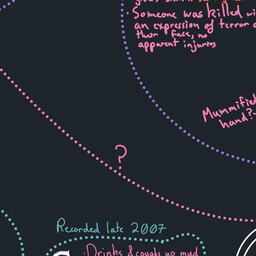 · Someone was killed wi
an expression of terror o
their face, no
apparent injuries
Mummified
hand?
?
Recorded late 2007
· Drinks & coughs up mud